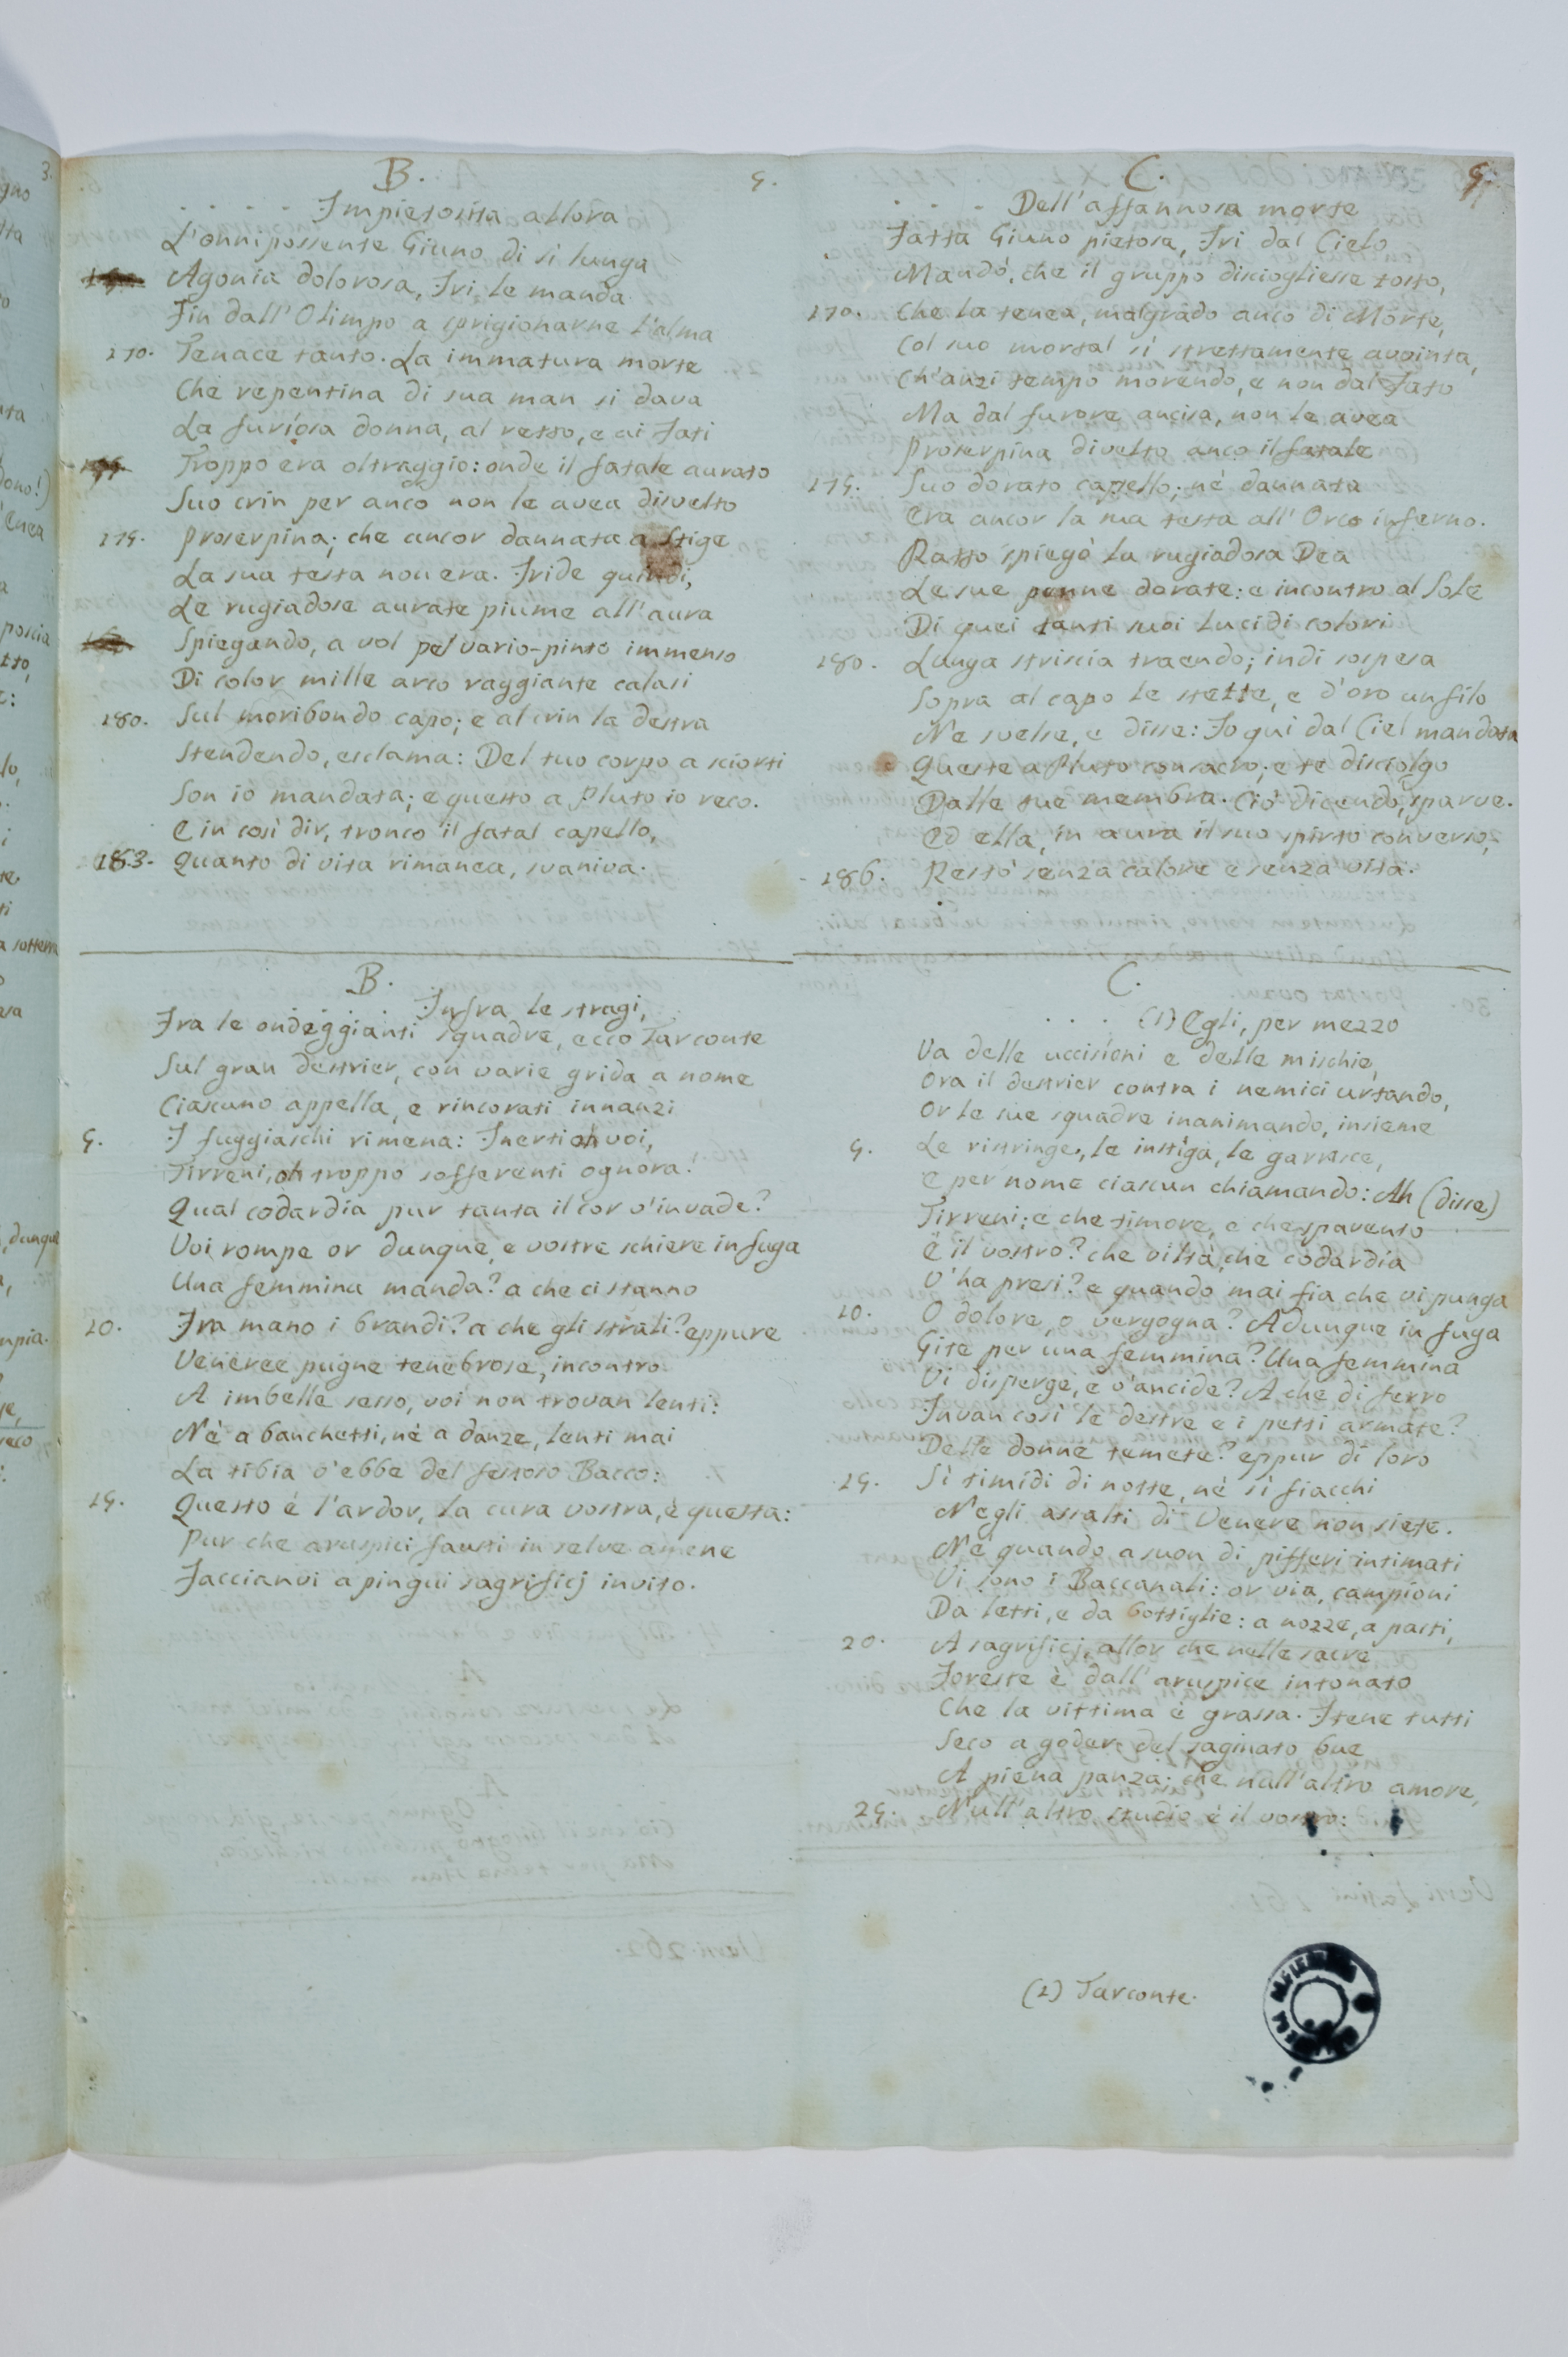 B. 5.
. . . . Impietosita allora
L'onnipossente Giuno di sì lunga
Agonia dolorosa, Iri le manda
Fin dall'Olimpo a sprigionarne l'alma
170. Tenace tanto. La immatura morte
Che repentina di sua man si dava
La furiosa donna, al retto, e ai Fati
Troppo era oltraggio: onde il fatale aurato
Suo crin per anco non le avea disvelto
175. Proserpina; che ancor dannata a Stige
La sua testa non era. Iride quindi,
Le rugiadose aurate piume all'aura
Spiegando, a vol pel vario-pinto immenso
Di color mille arco raggiante calasi
180. Sul moribondo capo; e al crin la destra
Stendendo, esclama: Del tuo corpo a sciorti
Son io mandata; e questo a Pluto io reco.
E in così dir, tronco il fatal capello,
183. Quanto di vita rimanea, svaniva.
B.
. . . . Infra le stragi,
Fra le ondeggianti squadre, ecco Tarconte
Sul gran destrier, con varie grida a nome
Ciascuno appella, e rincorati innanzi
5. I fuggiaschi rimena: Inerti oh voi,
Tirreni, oh troppo sofferenti ognora!
Qual codardia pur tanta il cor v'invade?
Voi rompe or dunque, e vostre schiere in fuga
Una femmina manda? a che ci stanno
10. Fra mano i brandi? a che gli strali? eppure
Veneree pugne tenebrose, incontro
A imbelle sesso, voi non trovan lenti:
Nè a banchetti, nè a danze, lenti mai
La tibia v'ebbe del festoso Bacco:
15. Questo è l'ardor, la cura vostra, è questa:
Pur che aruspici fausti in selve amene
Faccianvi a pingui sagrificj invito.
C. 5.
. . . Dell'affannosa morte
Fatta Giuno pietosa, Iri dal Cielo
Mandò, che il gruppo disciogliesse tosto,
170. Che la tenea, malgrado anco di Morte,
Col suo mortal sì strettamente avvinta,
Ch'anzi tempo morendo, e non dal Fato
Ma dal furore ancisa, non le avea
Proserpina divelto anco il fatale
175. Suo dorato capello; nè dannata
Era ancor la sua testa all'Orco inferno.
Ratto spiegò la rugiadosa Dea
Le sue penne dorate: e incontro al Sole
Di quei tanti suoi lucidi colori
180. Lunga striscia traendo; indi sospesa
Sopra al capo le stette, e d'oro un filo
Ne svelse, e disse: Io qui dal Ciel mandata
Questo a Pluto consacro; e te disciolgo
Dalle tue membra. Ciò dicendo, sparve.
Ed ella, in aura il suo spirto converso,
186. Restò senza calore e senza vita.
C.
. . . (1) Egli, per mezzo
Va delle uccisioni e delle mischie,
Ora il destrier contra i nemici urtando,
Or le sue squadre inanimando, insieme
5. Le ristringe, le instiga, le garrisce,
E per nome ciascun chiamando: Ah (disse)
Tirreni; e che timore, e che spavento
È il vostro? che viltà, che codardia
V'ha presi? e quando mai fia che vi punga
10. O dolore, o vergogna? Adunque in fuga
Gite per una femmina? Una femmina
Vi disperge, e v'ancide? A che di ferro
Invan così le destre e i petti armate?
Delle donne temete? eppur di loro
15. Sì timidi di notte, nè sì fiacchi
Negli assalti di Venere non siete.
Nè quando a suon di pifferi intimati
Vi sono i Baccanali: or via, campioni
Da letti, e da bottiglie: a nozze, a pasti,
20. A sagrificj, allor che nelle sacre
Foreste è dall'aruspice intonato
Che la vittima è grassa. Itene tutti
Seco a goder del saginato bue
A piena panza: che null'altro amore,
25. Null'altro studio è il vostro:
(1) Tarconte.